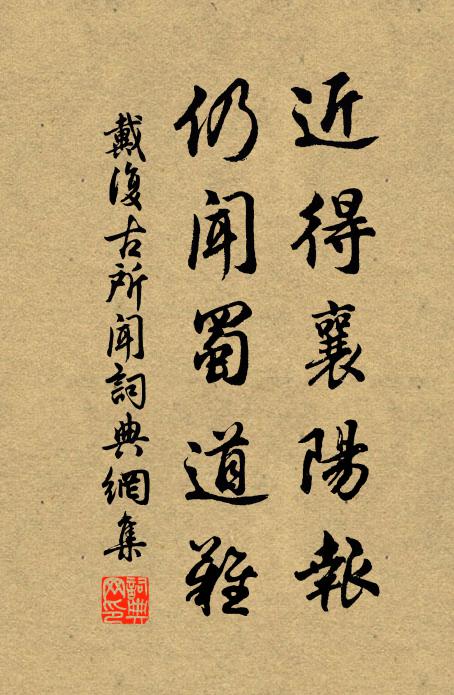 近得襄陽報
仍聞蜀道難
戴復古所聞詞典網集
詞典網印